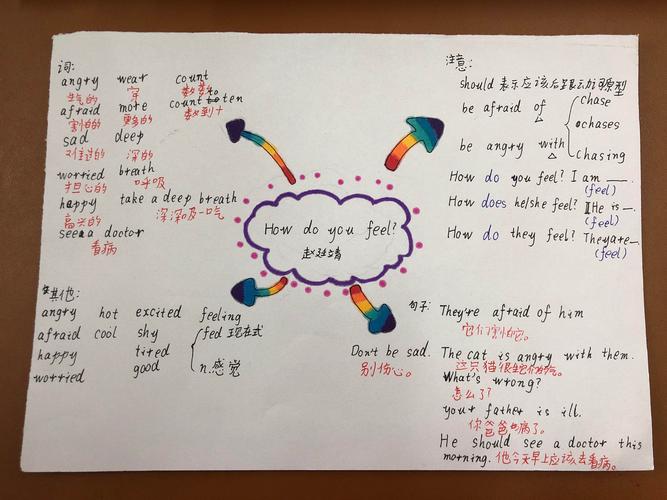 词:
angry wear count
生气的 穿 数数。
afraid more count to ten
害怕的 更多的 数到十
sad deep
难过的 深的
worried breath
担心的 呼吸
happy take a deep breath
高兴的 深深吸一吃
see a doctor
看病
注意:
should 表示应该后跟动词原型
be afraid of
be angry with
chase
chases
chasing
How do you feel? I am __.
(feel)
How does he/she feel? He is __.
(feel)
How do they feel? They are __.
(feel)
How do you feel?
其他:
angry hot excited feeling
afraid cool shy fed 现在式
happy tired
worried good n.感觉
Don't be sad.
别伤心。
句子:
They're afraid of him
它们害怕它。
The cat is angry with them.
这只猫很生它们的气。
What's wrong?
怎么了?
your father is ill.
你爸爸生病了。
He should see a doctor this
morning. 他今天早上应该去看病。